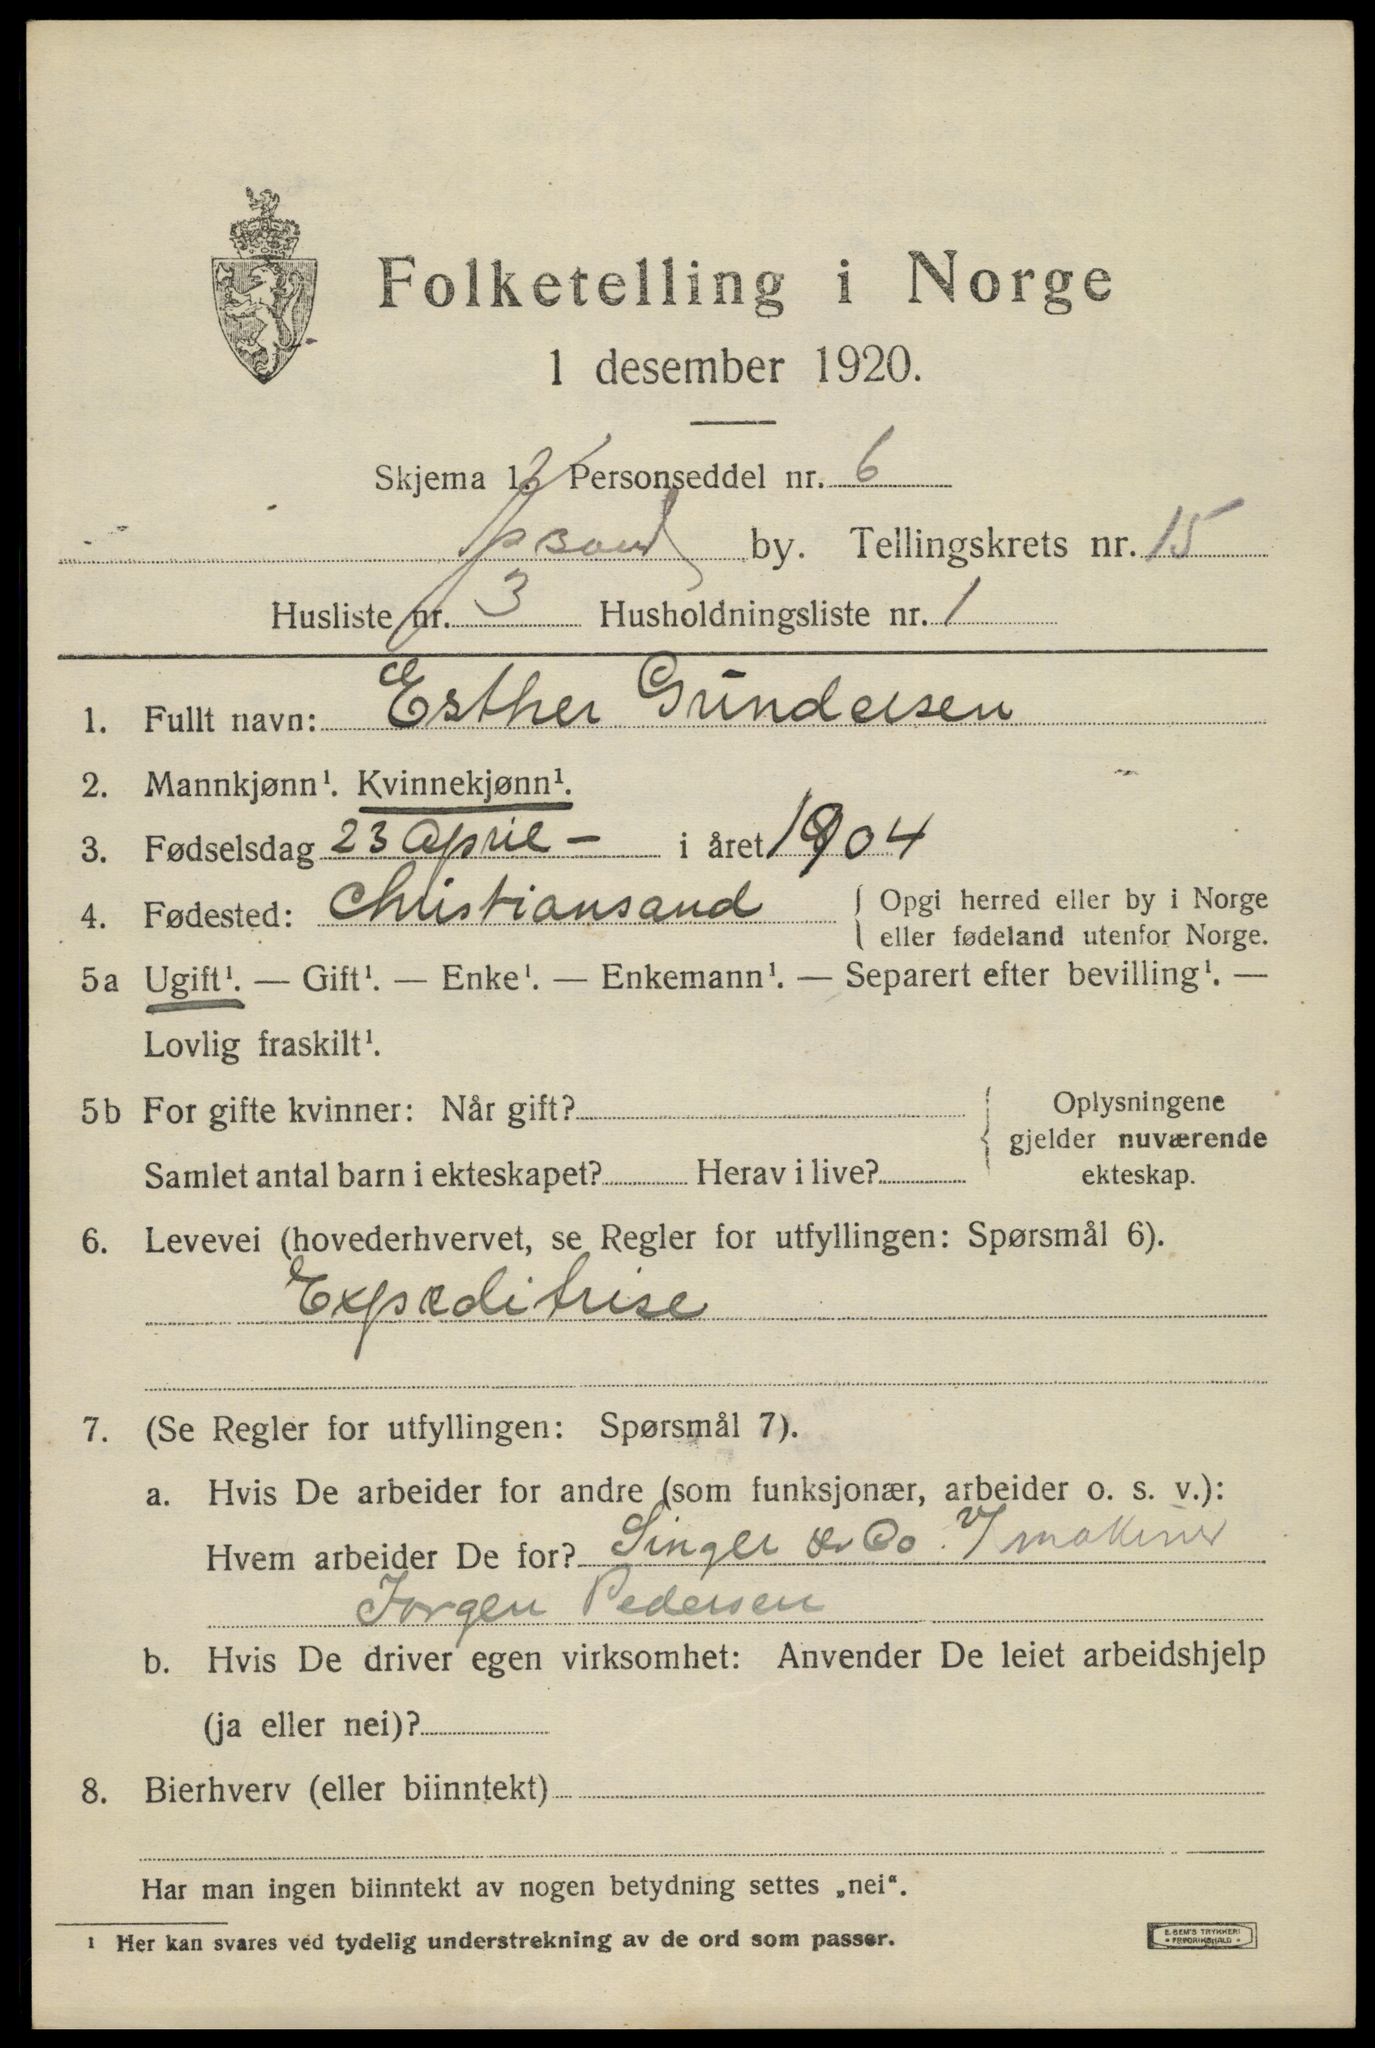 Folketelling i Norge
1 desember 1920.
Skjema 1. Personseddel nr. 6
by. Tellingskrets nr. 15
Husliste nr. 3 Husholdningsliste nr. 1
1. Fullt navn: Esther Gundersen
2. Mannkjønn¹. Kvinnekjønn¹.
3. Fødselsdag 23 April – i året 1904
4. Fødested: Christiansand { Opgi herred eller by i Norge
eller fødeland utenfor Norge.
5a Ugift¹. — Gift¹. — Enke¹. — Enkemann¹. — Separert efter bevilling¹. —
Lovlig fraskilt¹.
5b For gifte kvinner: Når gift? { Oplysningene
gjelder nuværende
Samlet antal barn i ekteskapet? Herav i live? ekteskap.
6. Levevei (hovederhvervet, se Regler for utfyllingen: Spørsmål 6).
Expeditrise
7. (Se Regler for utfyllingen: Spørsmål 7).
a. Hvis De arbeider for andre (som funksjonær, arbeider o. s. v.):
Hvem arbeider De for? Singer & Co.
Jørgen Pedersen
b. Hvis De driver egen virksomhet: Anvender De leiet arbeidshjelp
(ja eller nei)?
8. Bierhverv (eller biinntekt)
Har man ingen biinntekt av nogen betydning settes „nei“.
¹ Her kan svares ved tydelig understrekning av de ord som passer.
E. SEM'S TRYKKERI
FREDRIKSHALD